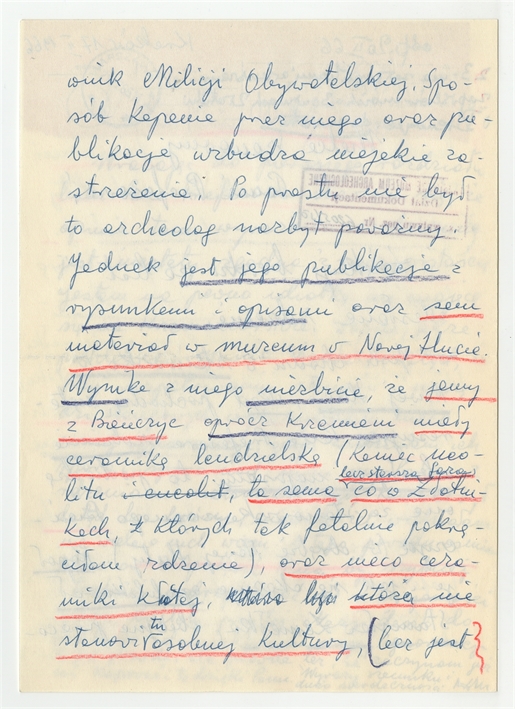 wnik Milicji Obywatelskiej. Spo-
sób kopania przez niego oraz pu-
blikacje wzbudza niejakie za-
strzeżenia. Po prostu nie był
to archeolog nazbyt poważny.
Jednak jest jego publikacja z
rysunkami i opisami oraz sam
materiał w muzeum w Nowej Hucie.
Wynika z niego niezbicie, że jamy
z Bieńczyc oprócz krzemieni miały
ceramikę lendzielską (koniec neo-
lecz starsza faza
litu i eneolit, ta sama co w Złotni-
kach, z których tak fatalnie pokrę-
ciłam rdzenie), oraz nieco cera-
miki kłutej, która nie
stanowi tu osobnej kultury, (lecz jest